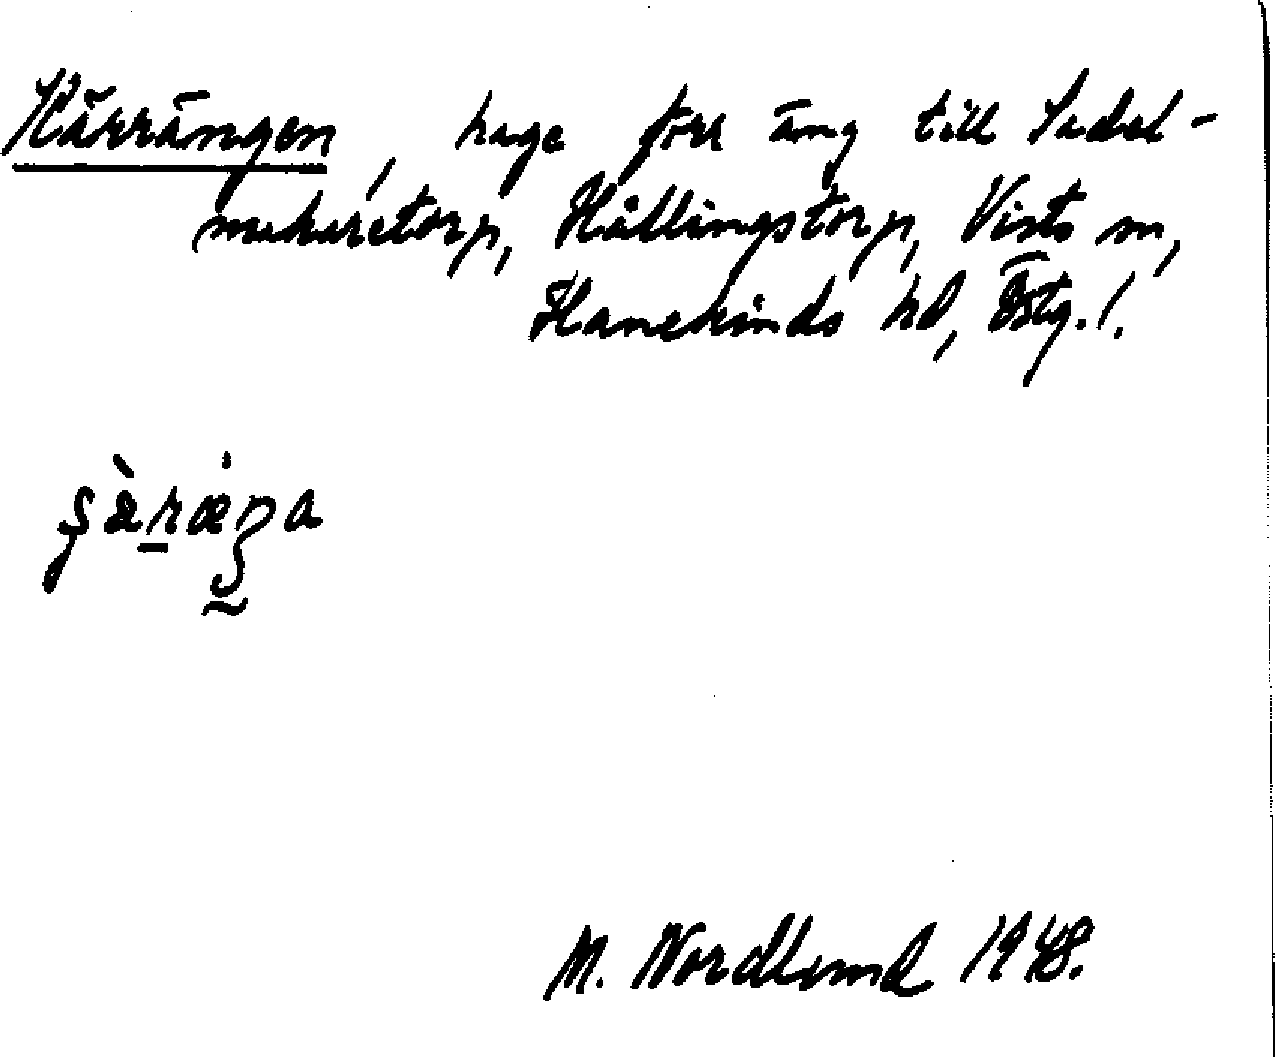 Kärrängen, hage förr äng till Sadel-
makaretorp, Hällingstorp, Vists sn,
Hanekinds hd, Östg. l.
M. Nordlund 1948.